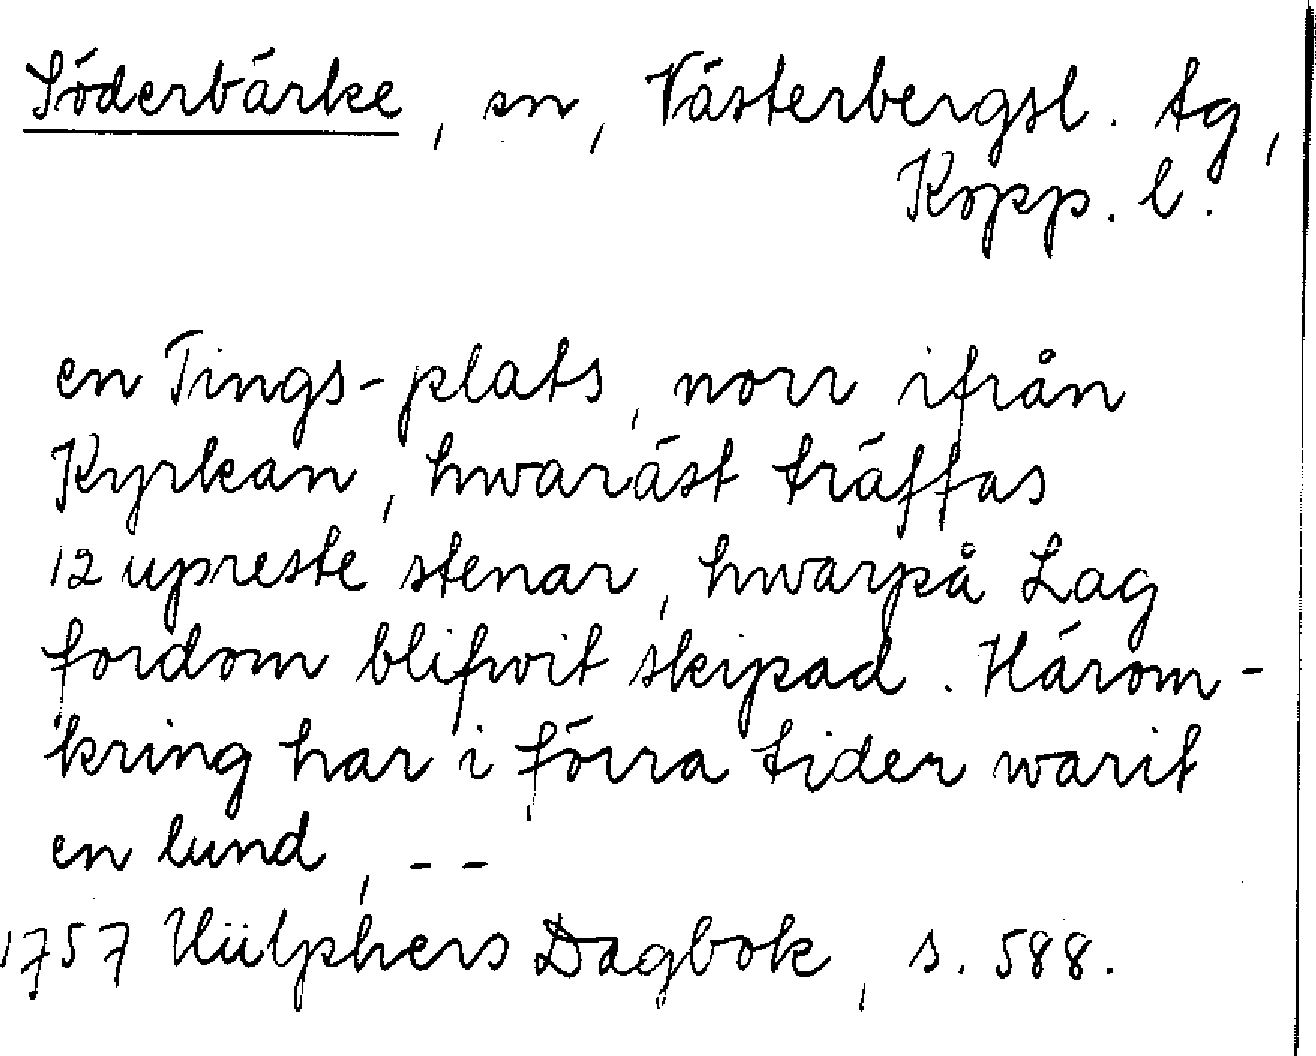 Söderbärke, sn, Västerbergsl. tg,
Kopp. l.
en Tings-plats, norr ifrån
Kyrkan, hwaräst träffas
12 upreste stenar, hwarpå Lag
fordom blifwit skipad. Härom-
kring har i förra tider warit
en lund, - -
1757 Hülphers Dagbok, s. 588.